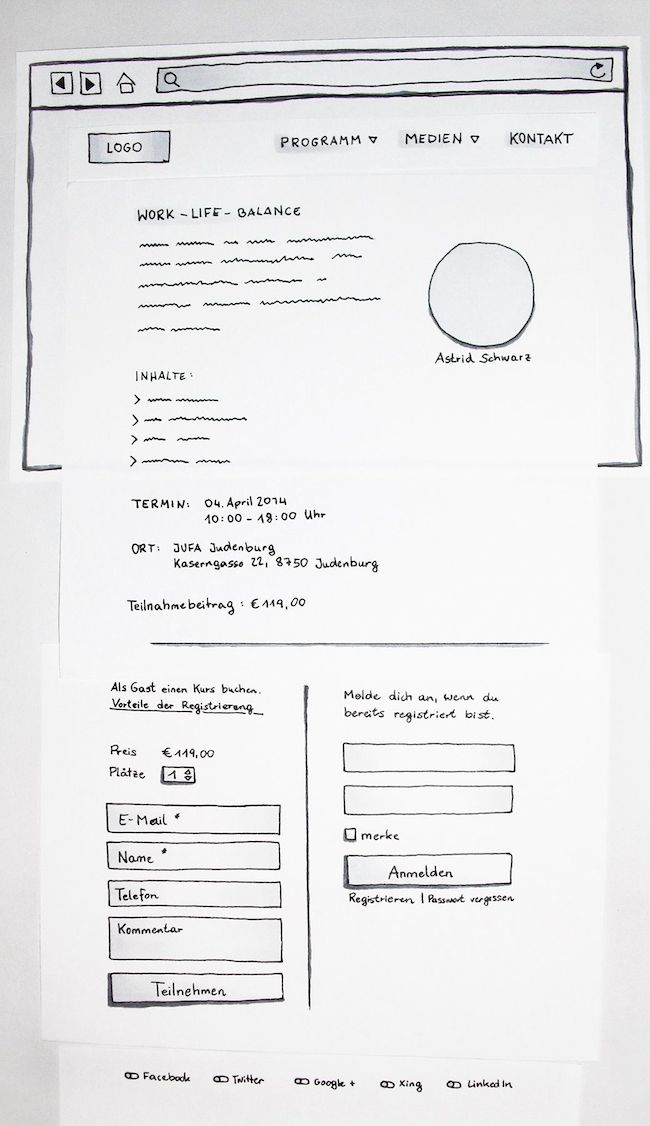 LOGO
PROGRAMM MEDIEN KONTAKT
WORK-LIFE-BALANCE
Astrid Schwarz
INHALTE:
TERMIN: 04. April 2014
10:00 - 18:00 Uhr
ORT: JUFA Judenburg
Kaserngasso 22, 8750 Judenburg
Teilnahmebeitrag: €119,00
Als Gast einen Kurs buchen.
Vorteile der Registrierung
Preis €119,00
Plätze 1
E-Mail *
Name *
Telefon
Kommentar
Teilnehmen
Melde dich an, wenn du
bereits registriert bist.
merke
Anmelden
Registrieren | Passwort vergessen
Facebook Twitter Google + Xing LinkedIn